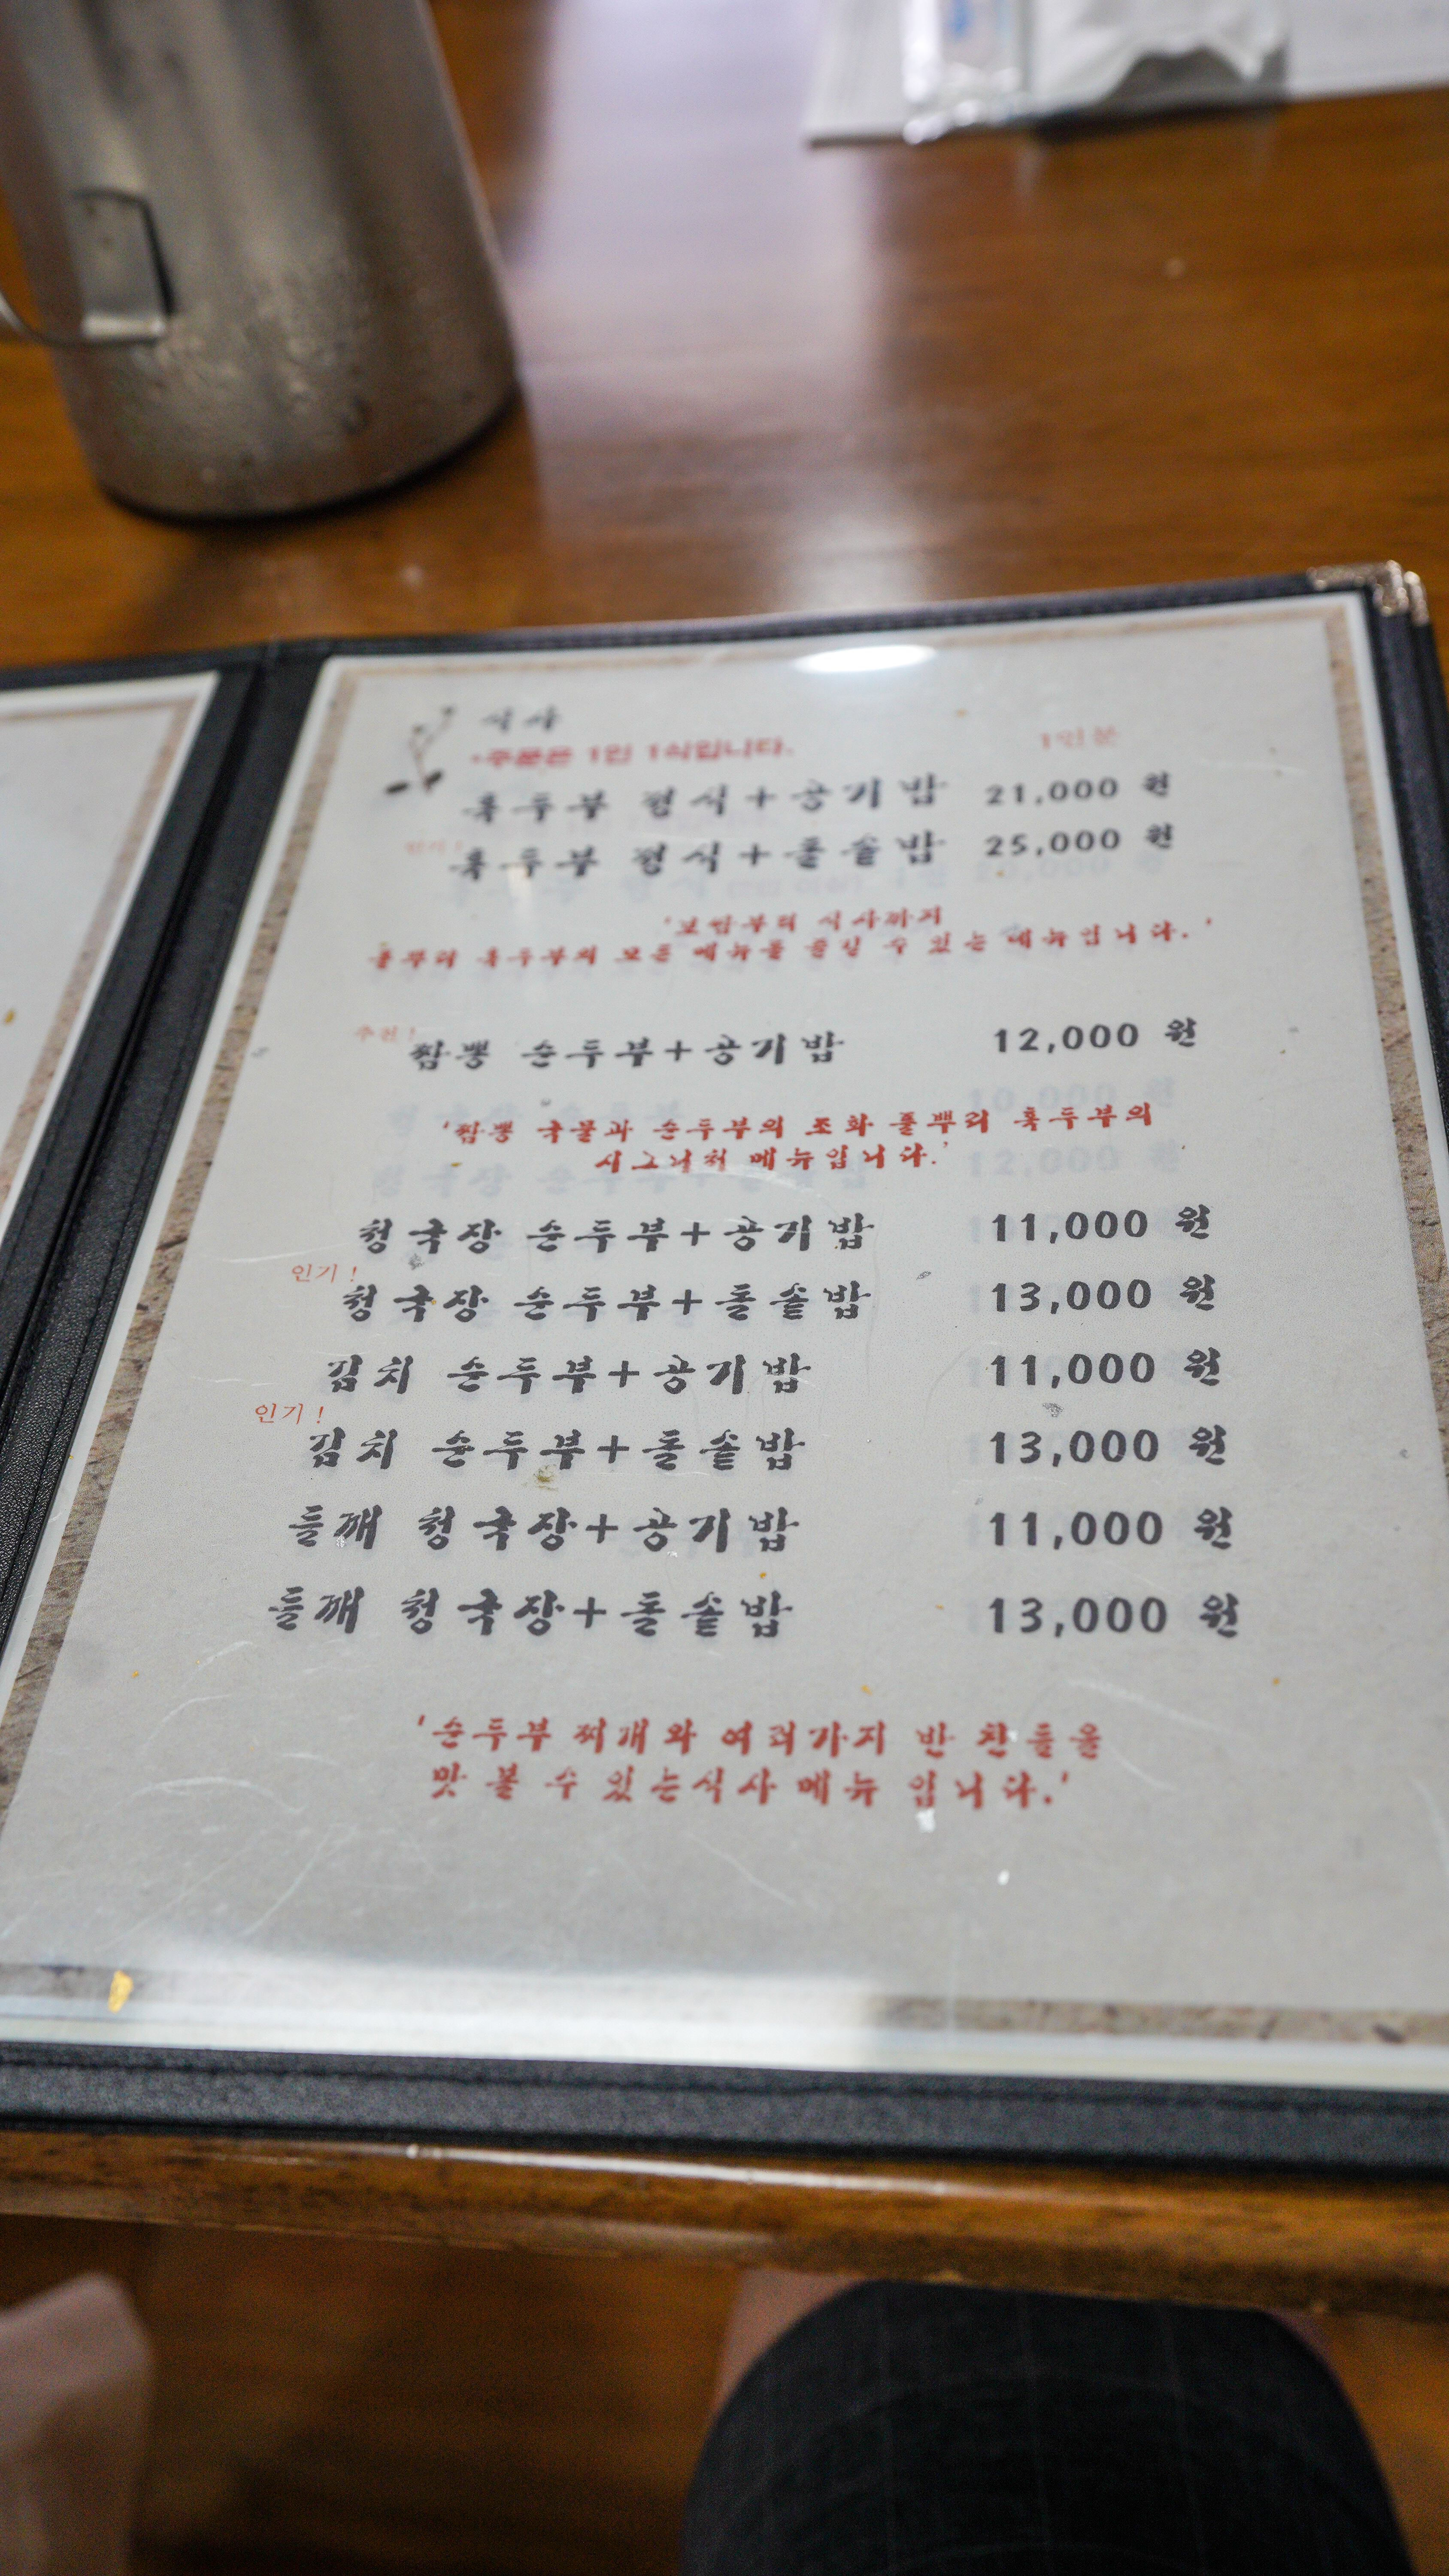 식사
*주문은 1인 1식입니다.
1인분
혹두부 정식+공기밥 21,000 원
인기!
혹두부 정식+돌솥밥 25,000 원
'보쌈부터 식사까지
돌뿌리 혹두부의 모든 메뉴를 즐길 수 있는 메뉴입니다.'
추천!
짬뽕 순두부+공기밥 12,000 원
'짬뽕 국물과 순두부의 조화 돌뿌리 혹두부의
시그니처 메뉴입니다.'
청국장 순두부+공기밥 11,000 원
인기!
청국장 순두부+돌솥밥 13,000 원
김치 순두부+공기밥 11,000 원
인기!
김치 순두부+돌솥밥 13,000 원
들깨 청국장+공기밥 11,000 원
들깨 청국장+돌솥밥 13,000 원
'순두부 찌개와 여러가지 반찬들을
맛 볼 수 있는식사 메뉴 입니다.'